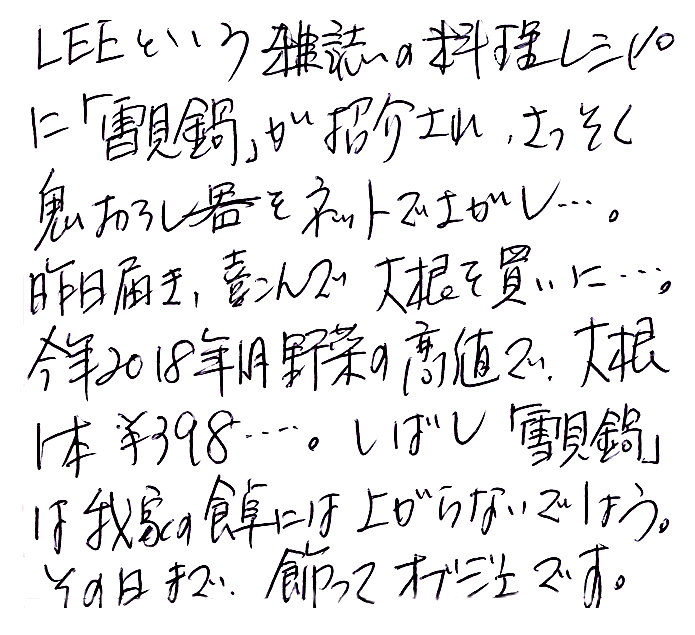 LEEという雑誌の料理レシピ
に「雪見鍋」が紹介され、さっそく
鬼おろし器をネットでさがし…。
昨日届き、喜こんで大根を買いに…。
今年2018年1月野菜の高値で、大根
1本¥398…。しばし「雪見鍋」
は我家の食卓には上がらないでしょう。
その日まで、飾ってオブジェです。